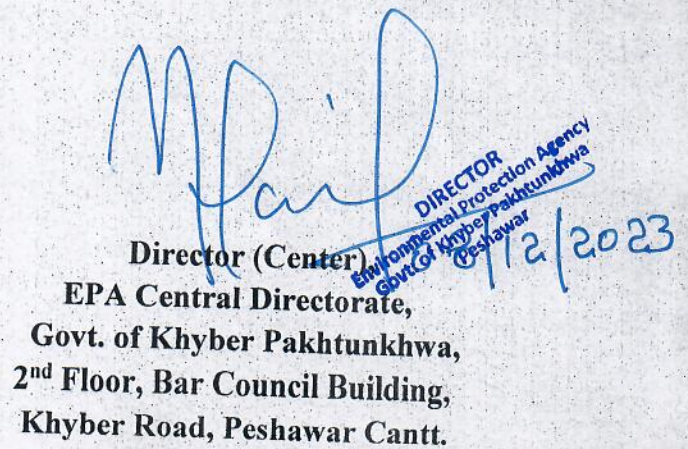 DIRECTOR
Environmental Protection Agency
Govt. of Khyber Pakhtunkhwa
Peshawar
/12/2023
Director (Center),
EPA Central Directorate,
Govt. of Khyber Pakhtunkhwa,
2nd Floor, Bar Council Building,
Khyber Road, Peshawar Cantt.